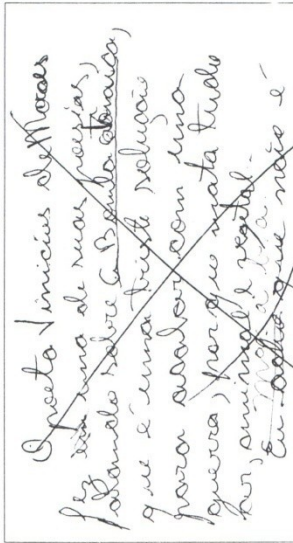 O poeta Vinicius de Moraes
fez em uma de suas poesias,
falando sobre a Bomba atomica,
que é uma triste solução
para acabar com uma
guerra, porque mata tudo
ar, animal e vegetal.
Eu acho que não é